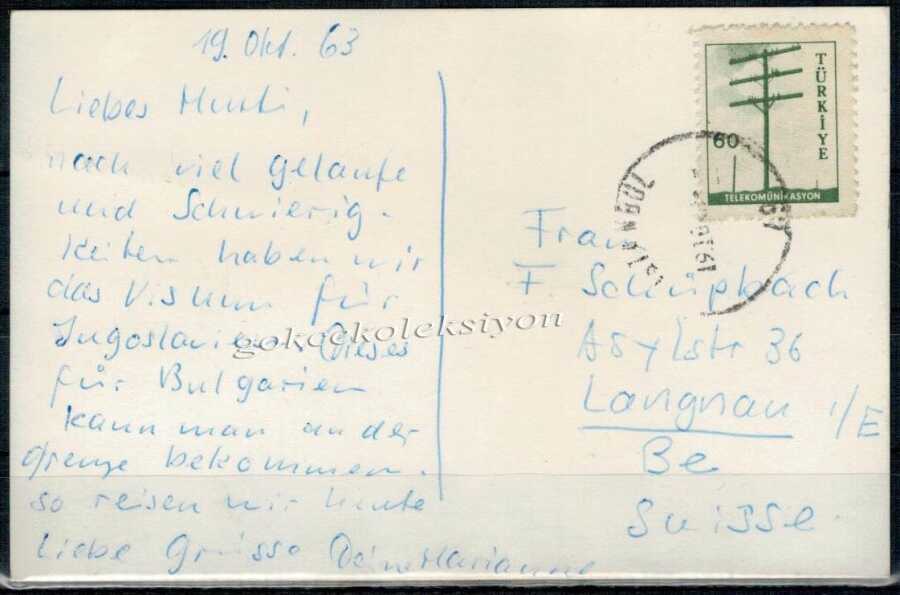 19. Okt. 63
Liebes Mueti,
nach viel gelaufe
und Schwierig-
keiten haben wir
das Viskum für
Jugoslavien. Dieses
für Bulgarien
kann man an der
Grenze bekommen.
so reisen wir heute
Liebe Grüsse Deine Marianne
TÜRKİYE
60
TELEKOMÜNİKASYON
İSTANBUL
Frau
F Schüpbach
Asylstr 36
Langnau i/E
Be
Suisse
gokcekoleksiyon